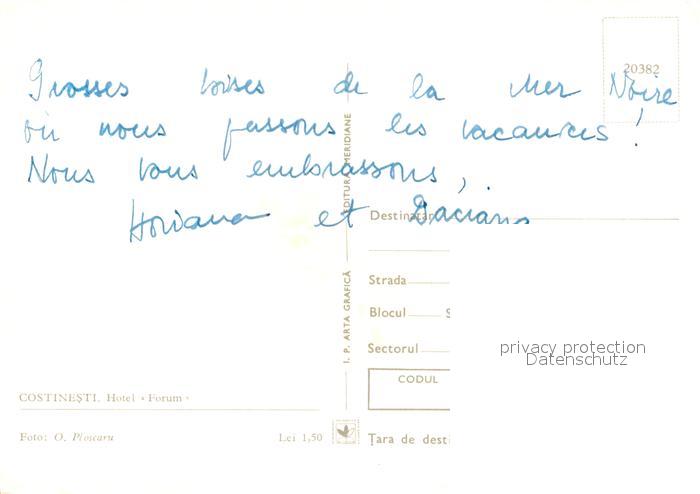 20382
Grosses bises de la Mer Noire
où nous passons les vacances !
Nous vous embrassons,
Horiana et Dacians
EDITURA MERIDIANE
I. P. ARTA GRAFICĂ
Destinatar
Strada
Blocul S
Sectorul
CODUL
Țara de desti
privacy protection
Datenschutz
COSTINEȘTI. Hotel «Forum»
Foto: O. Ploscaru
Lei 1,50